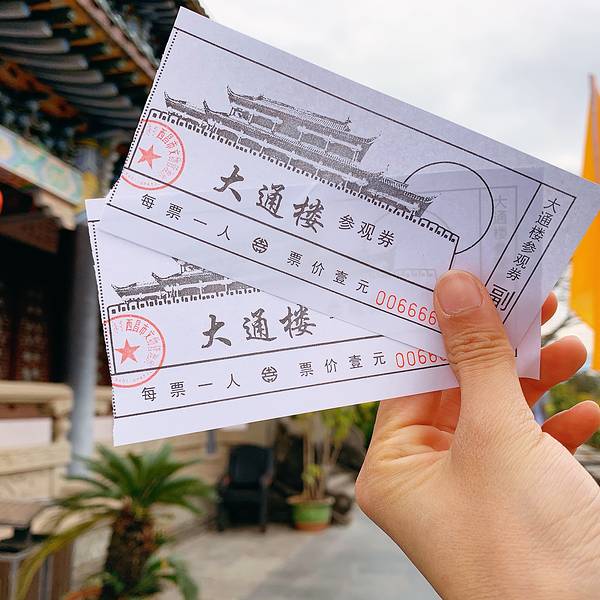 大通楼 参观券
每票一人 票价壹元
006666
大通楼参观券
副
西昌市文
大通楼
每票一人 票价壹元
0066
西昌市文